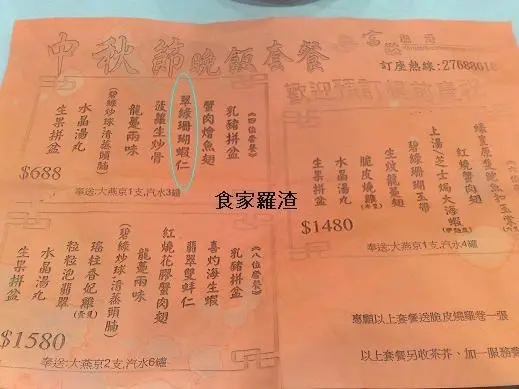 中秋節晚飯套餐
富臨
訂座熱線:27688618
歡迎預訂
《四位套餐》
乳豬拼盆
蟹肉燴魚翅
翠綠珊瑚蝦仁
菠蘿生炒骨
龍躉兩味
(碧綠炒球·清蒸頭腩)
水晶湯丸
生果拼盆
$688
奉送:大燕京1支,汽水3罐
紅燒蟹肉翅
上湯/芝士焗大海蝦
碧綠珊瑚玉帶
生炊龍躉
脆皮燒雞
水晶湯丸
生果拼盆
$1480
奉送:大燕京1支,汽水4罐
食家羅渣
《八位套餐》
乳豬拼盆
喜灼海生蝦
翡翠雙蚌仁
紅燒花膠蟹肉翅
龍躉兩味
(碧綠炒球·清蒸頭腩)
瑤柱香妃雞
粒粒泡翡翠
水晶湯丸
生果拼盆
$1580
奉送:大燕京2支,汽水6罐
惠顧以上套餐送脆皮燒雞卷一張
以上套餐另收茶芥、加一服務費